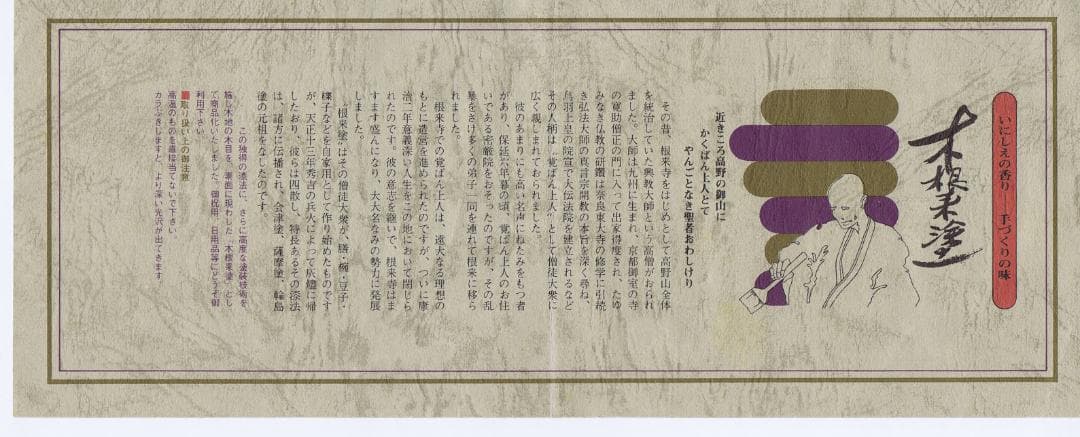 いにしえの香り――手づくりの味
木根来塗
近きころ高野の御山に
かくばん上人とて
やんごとなき聖者おわしけり
その昔、根来寺をはじめとして高野山全体
を統治していた興教大師という高僧がおられ
ました。大師は九州に生まれ、京都御室の寺
の寛助僧正の門に入って出家得度され、たゆ
みなき仏教の研鑽は奈良東大寺の修学に引続
き弘法大師の真言宗開教の本旨を深く尋ね、
鳥羽上皇の院宣で大伝法院を建立されるなど
その人柄は〝覚ばん上人〟として僧徒大衆に
広く親しまれておられました。
彼のあまりにも高い名声にねたみをもつ者
があり、保延六年幕の頃、覚ばん上人のお住
いである密厳院をおそったのですが、その乱
暴をさけ多くの弟子一同を連れて根来に移ら
れました。
根来寺での覚ばん上人は、遠大なる理想の
もとに造営を進められたのですが、ついに康
治二年意義深い人生をこの地において閉じら
れたのです。彼の意志を継いで、根来寺はま
すます盛んになり、大大名なみの勢力に発展
しました。
〝根来塗〟はその僧徒大衆が、膳・椀・豆子・
楪子などを自家用として作り始めたものです
が、天正十三年秀吉の兵火によって灰燼に帰
したおり、彼らは四散し、特長あるその漆法
は、諸方に伝播され、会津塗、薩摩塗、輪島
塗の元祖をなしたのです。
この独得の漆法に、さらに高度な塗装技術を
施し木地の木目を、漆面に現わした「木根来塗」とし
て商品化いたしました。御祝用、日用品等にどうぞ御
利用下さい。
■取り扱い上の御注意
高温のものを直接当てないで下さい。
カラぶきしますと、より深い光沢が出てきます。